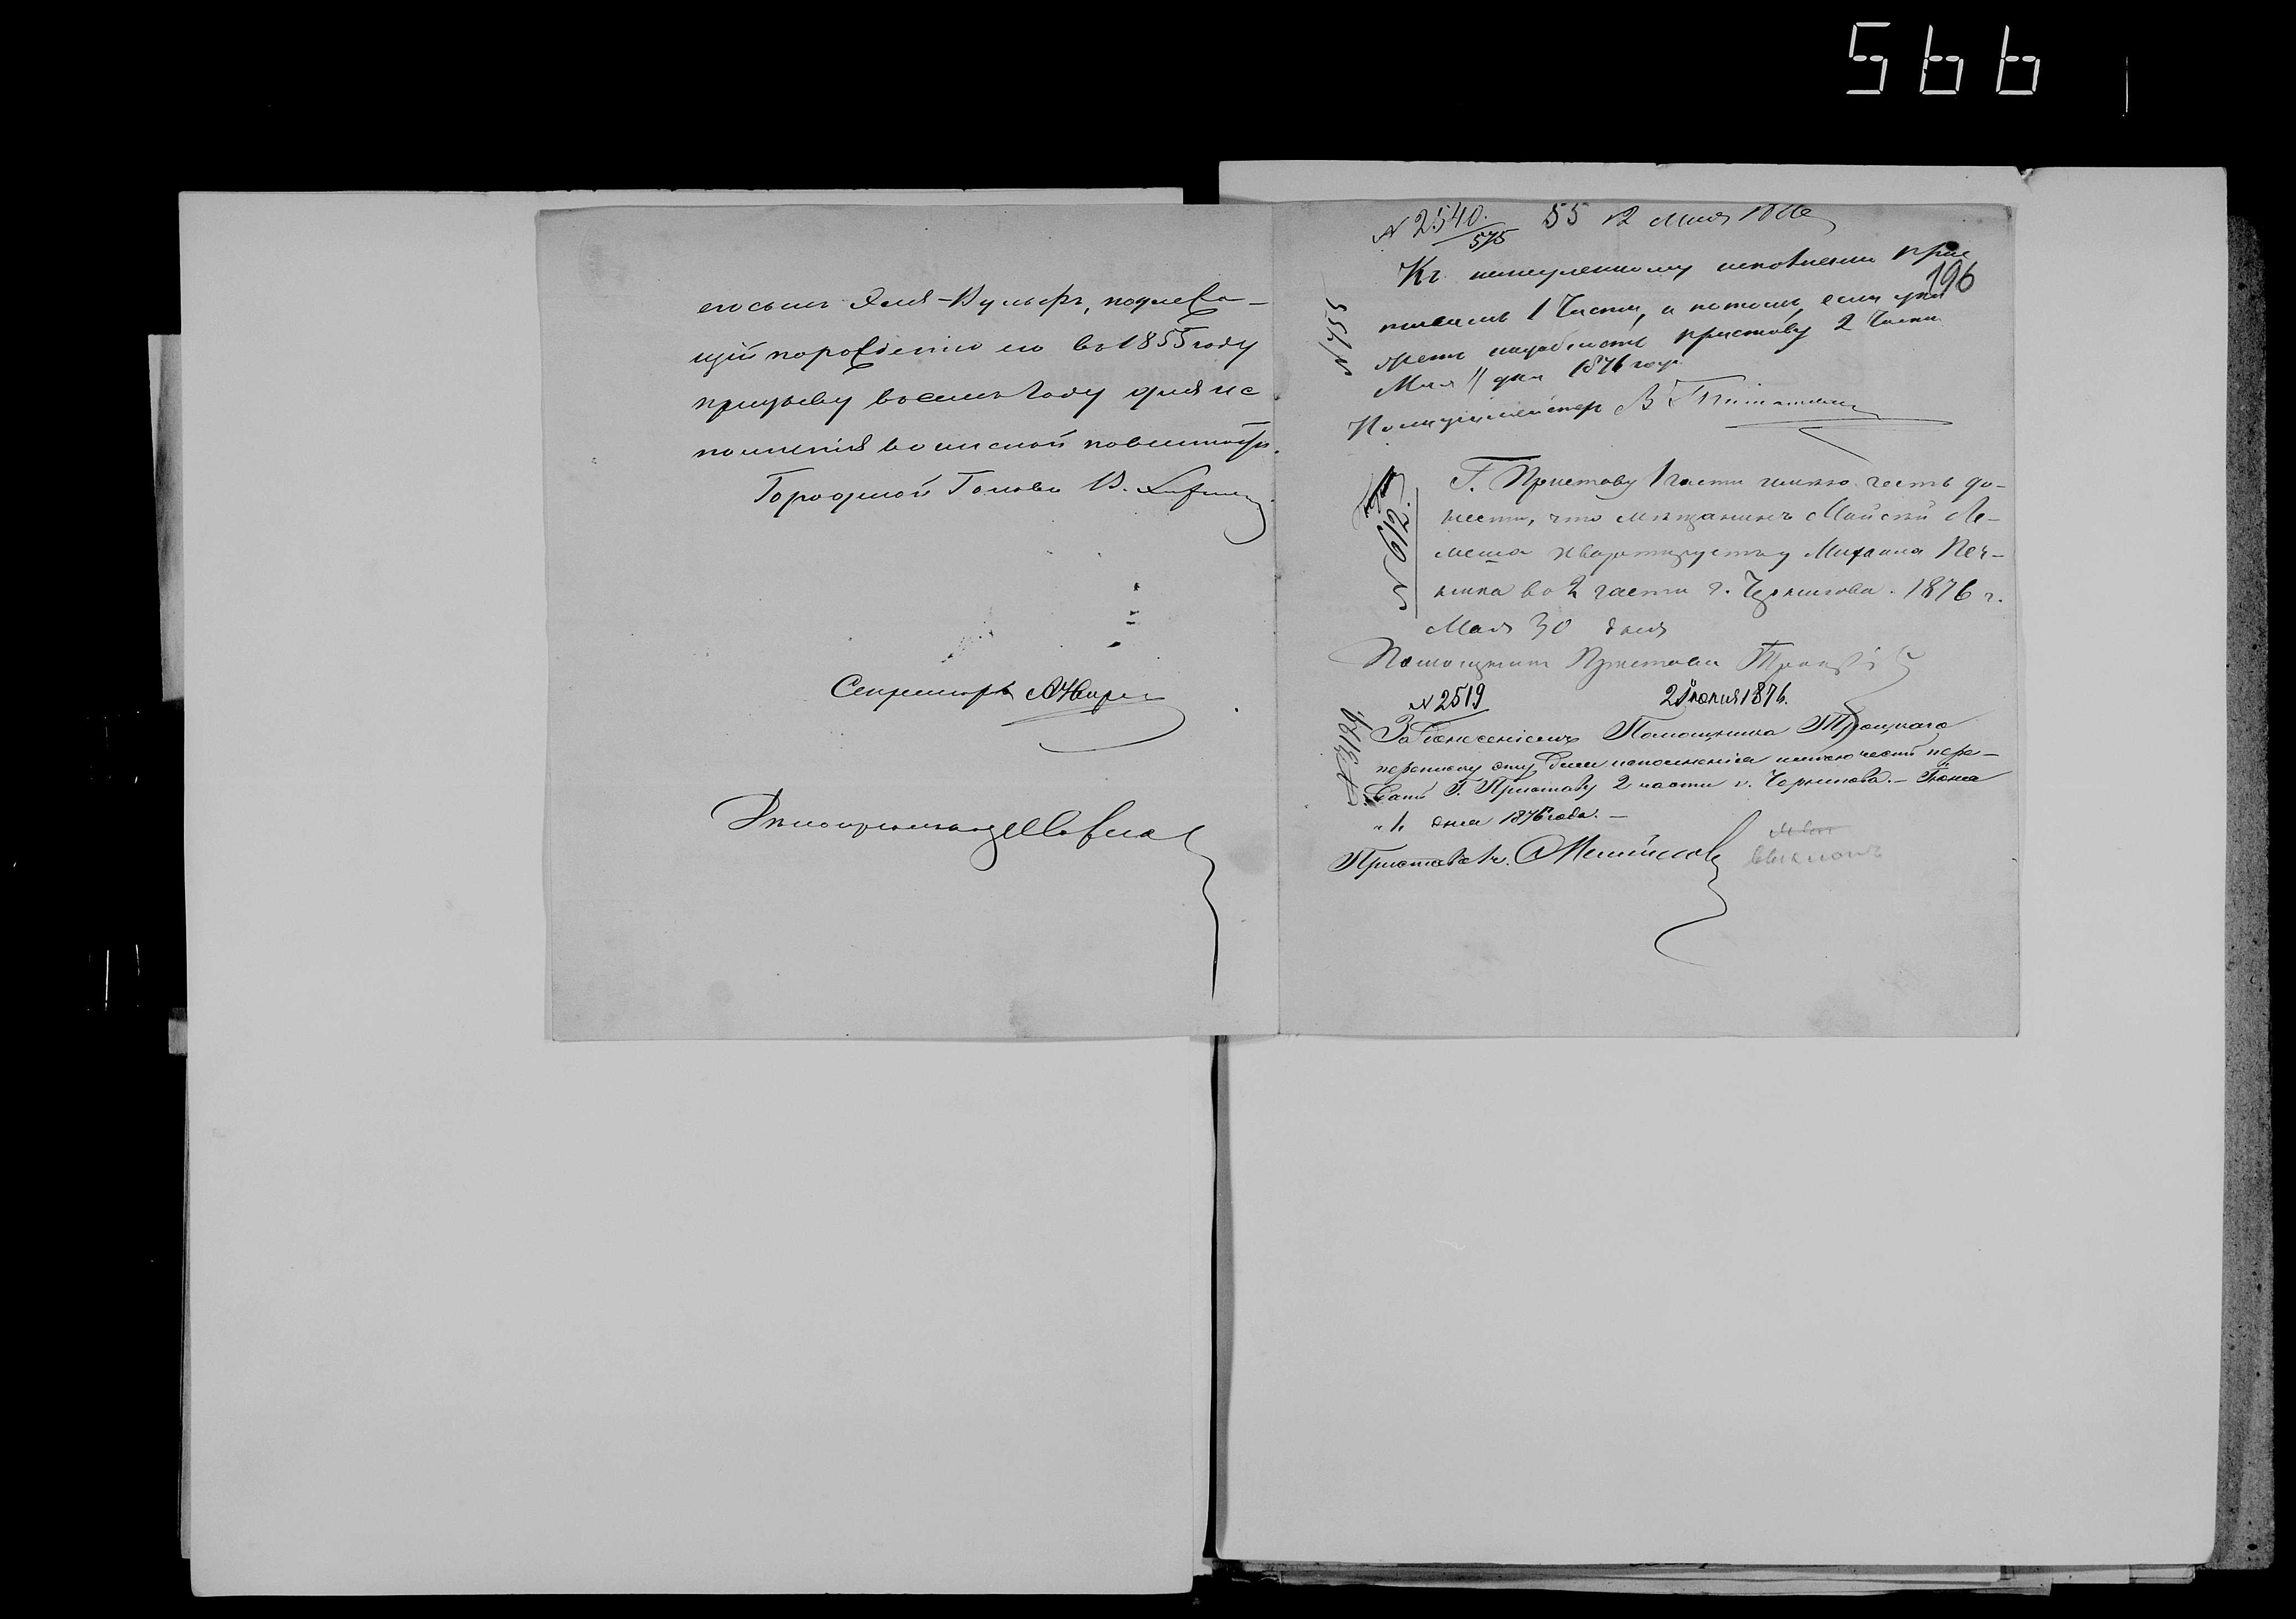 566
его сынъ Эля-Вульфъ, подлежа-
щій по рожденію его въ 1855 году
призыву въ семъ году для ис
полненія воинской повинности.
Городской Голова В.
Секретарь
Дѣлопроизвод
N 2540.
575
55 12 Мая 1876
196
Къ немедленному исполненію прис
тавомъ 1 Части, а потомъ, если
приставу 2 Части
Мая 11 дня 1876 года
N 1755
Полиціймейстеръ В
N 612.
Г. Приставу 1 части имѣю честь до-
нести, что мѣщанинъ Майскій Ле-
меша квартируетъ у Михаила Печ-
кина во 2 части г. Чернигова. 1876 г.
Мая 30 дня
Помощникъ Пристава Троцкій
N 2519
2 Іюня 1876.
N 3129.
За донесеніемъ Помощника Троцкаго
переписку эту для исполненія имѣю честь пере-
дать Г. Приставу 2 части г. Чернигова. - Іюня
"1" дня 1876 года. -
Приставъ 1 ч.